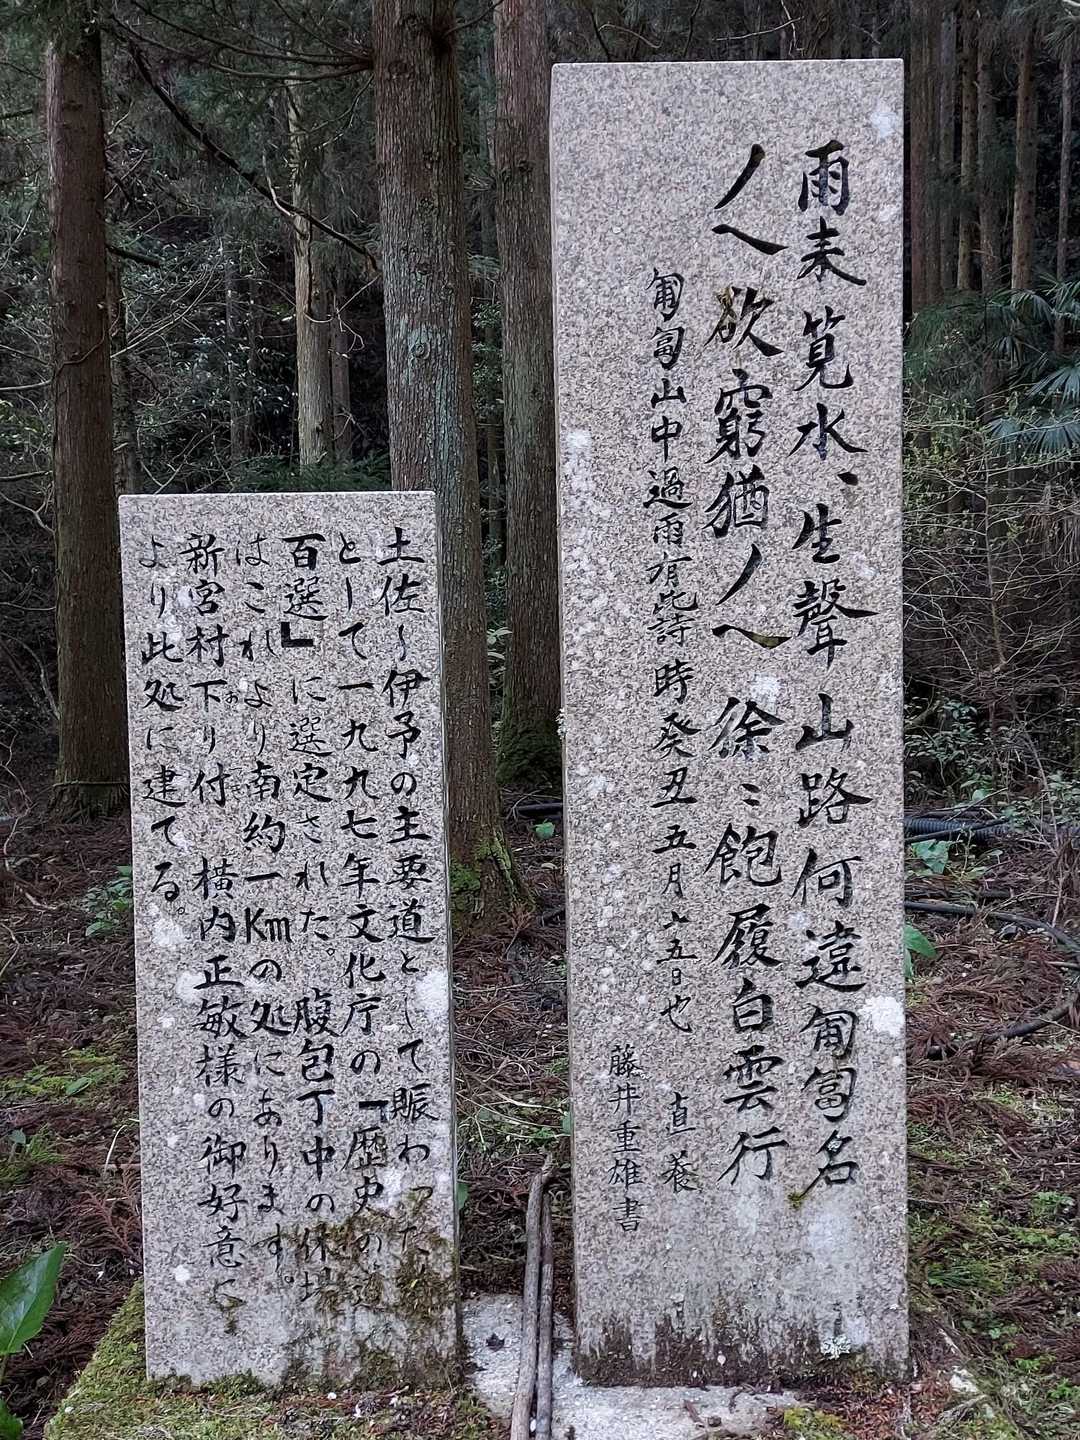 雨来筧水〻生聲山路何違匍匐名
丿乀欲窮猶丿乀徐〻飽履白雲行
匍匐山中過雨有此詩時癸丑五月十五日也 直養
藤井重雄書
土佐〜伊予の主要道として賑わった
として一九九七年文化庁の「歴史の道
百選」に選定された。腹包丁中の休場
はこれより南約一Kmの処にあります。
新宮村下り付 横内正敏様の御好意に
より此処に建てる。